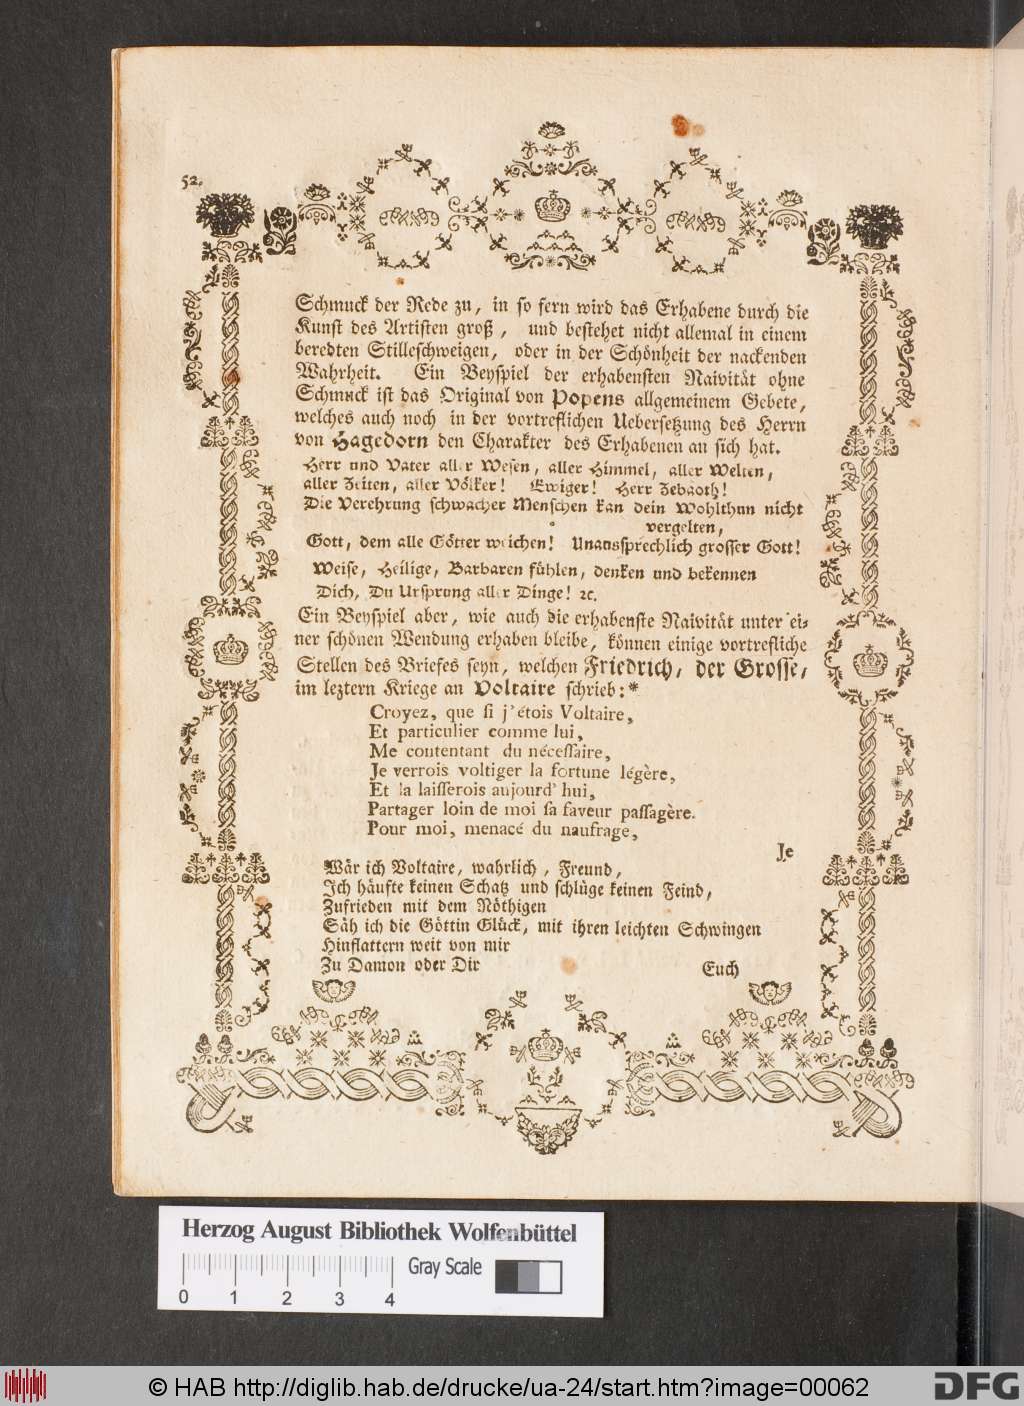 52.
Schmuck der Rede zu, in so fern wird das Erhabene durch die
Kunst des Artisten groß, und bestehet nicht allemal in einem
beredten Stilleschweigen, oder in der Schönheit der nackenden
Wahrheit. Ein Beyspiel der erhabensten Naivität ohne
Schmuck ist das Original von Popens allgemeinem Gebete,
welches auch noch in der vortreflichen Uebersetzung des Herrn
von Hagedorn den Charakter des Erhabenen an sich hat.
Herr und Vater aller Wesen, aller Himmel, aller Welten,
aller Zeiten, aller Völker! Ewiger! Herr Zebaoth!
Die Verehrung schwacher Menschen kan dein Wohlthun nicht
vergelten,
Gott, dem alle Götter weichen! Unaussprechlich grosser Gott!
Weise, Heilige, Barbaren fühlen, denken und bekennen
Dich, Du Ursprung aller Dinge! ꝛc.
Ein Beyspiel aber, wie auch die erhabenste Naivität unter ei-
ner schönen Wendung erhaben bleibe, können einige vortrefliche
Stellen des Briefes seyn, welchen Friedrich, der Grosse,
im leztern Kriege an Voltaire schrieb:*
Croyez, que si j'étois Voltaire,
Et particulier comme lui,
Me contentant du nécessaire,
Je verrois voltiger la fortune légère,
Et la laisserois aujourd'hui,
Partager loin de moi sa faveur passagère.
Pour moi, menacé du naufrage,
Je
Wär ich Voltaire, wahrlich, Freund,
Ich häufte keinen Schatz und schlüge keinen Feind,
Zufrieden mit dem Nöthigen
Säh ich die Göttin Glück, mit ihren leichten Schwingen
Hinflattern weit von mir
Zu Damon oder Dir
Euch
Herzog August Bibliothek Wolfenbüttel
Gray Scale
0 1 2 3 4
© HAB http://diglib.hab.de/drucke/ua-24/start.htm?image=00062
DFG